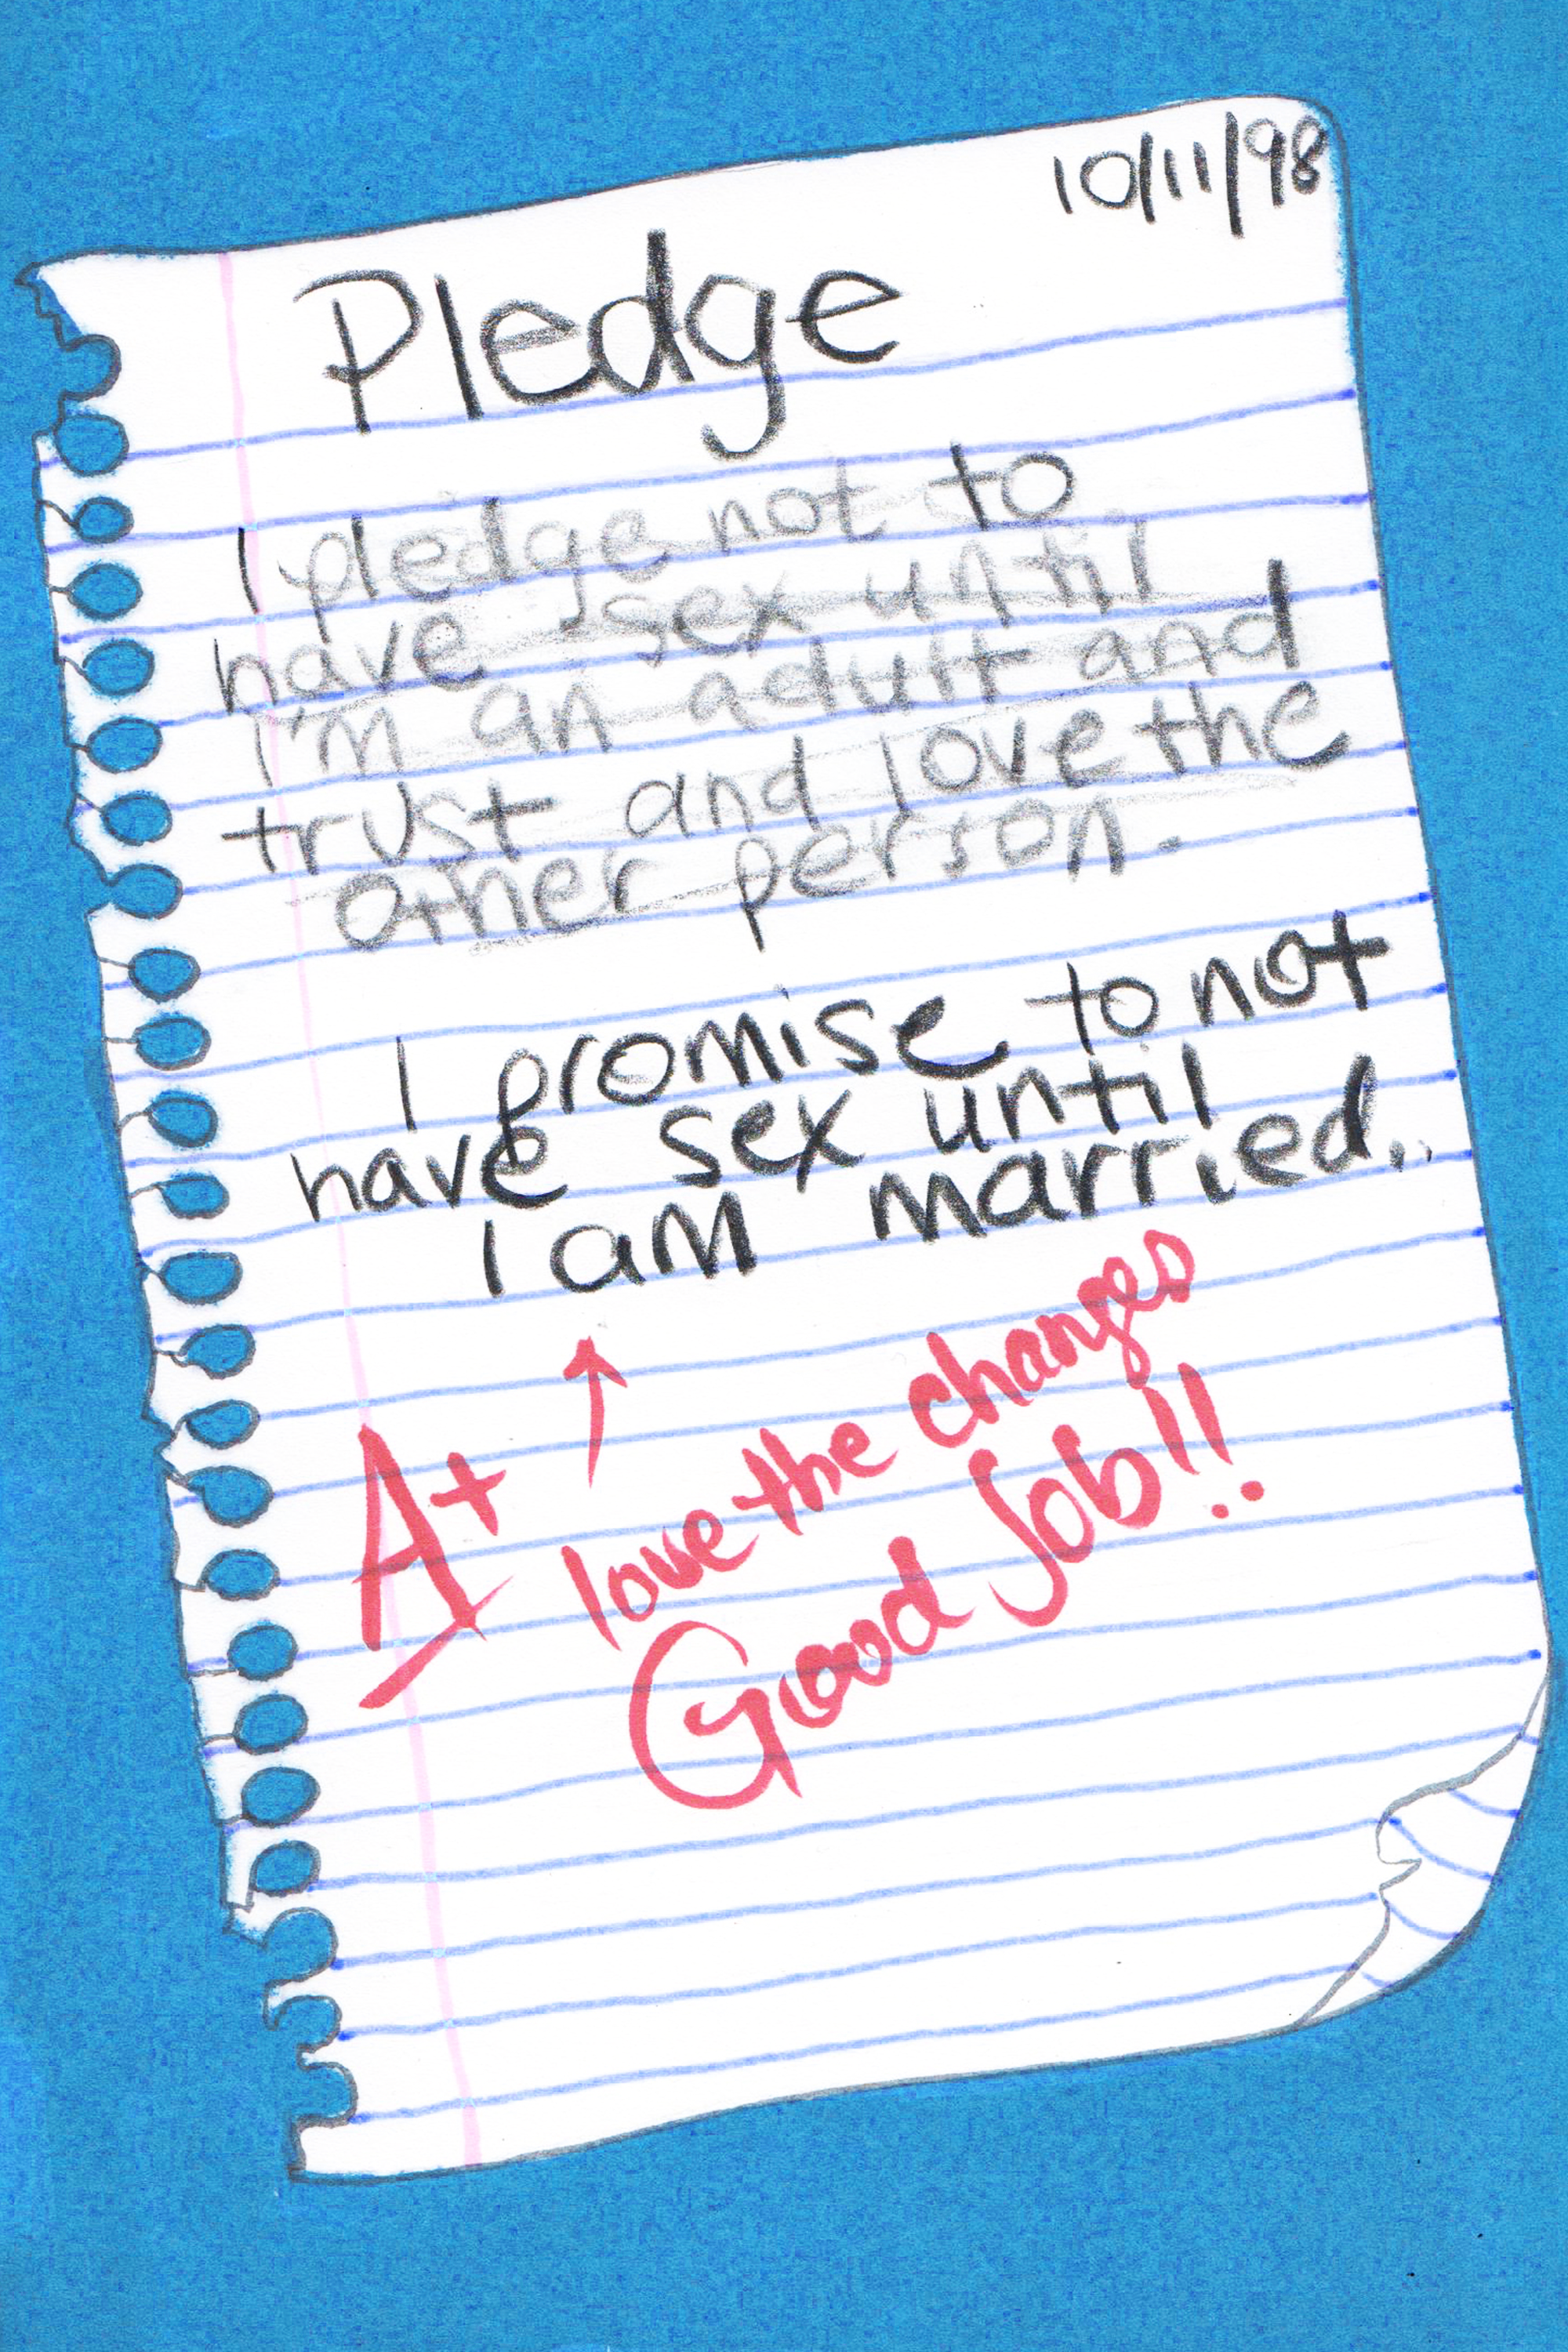 10/11/98
Pledge
I pledge not to
have sex until
I'm an adult and
trust and love the
other person.
I promise to not
have sex until
I am married..
A+
love the changes
Good Job!!